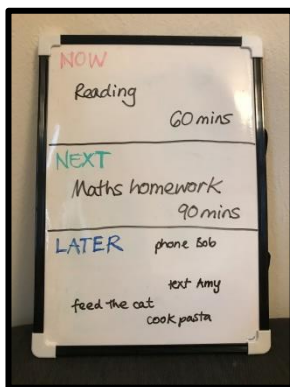 NOW
Reading
60 mins
NEXT
Maths homework
90 mins
LATER phone Bob
text Amy
feed the cat
cook pasta